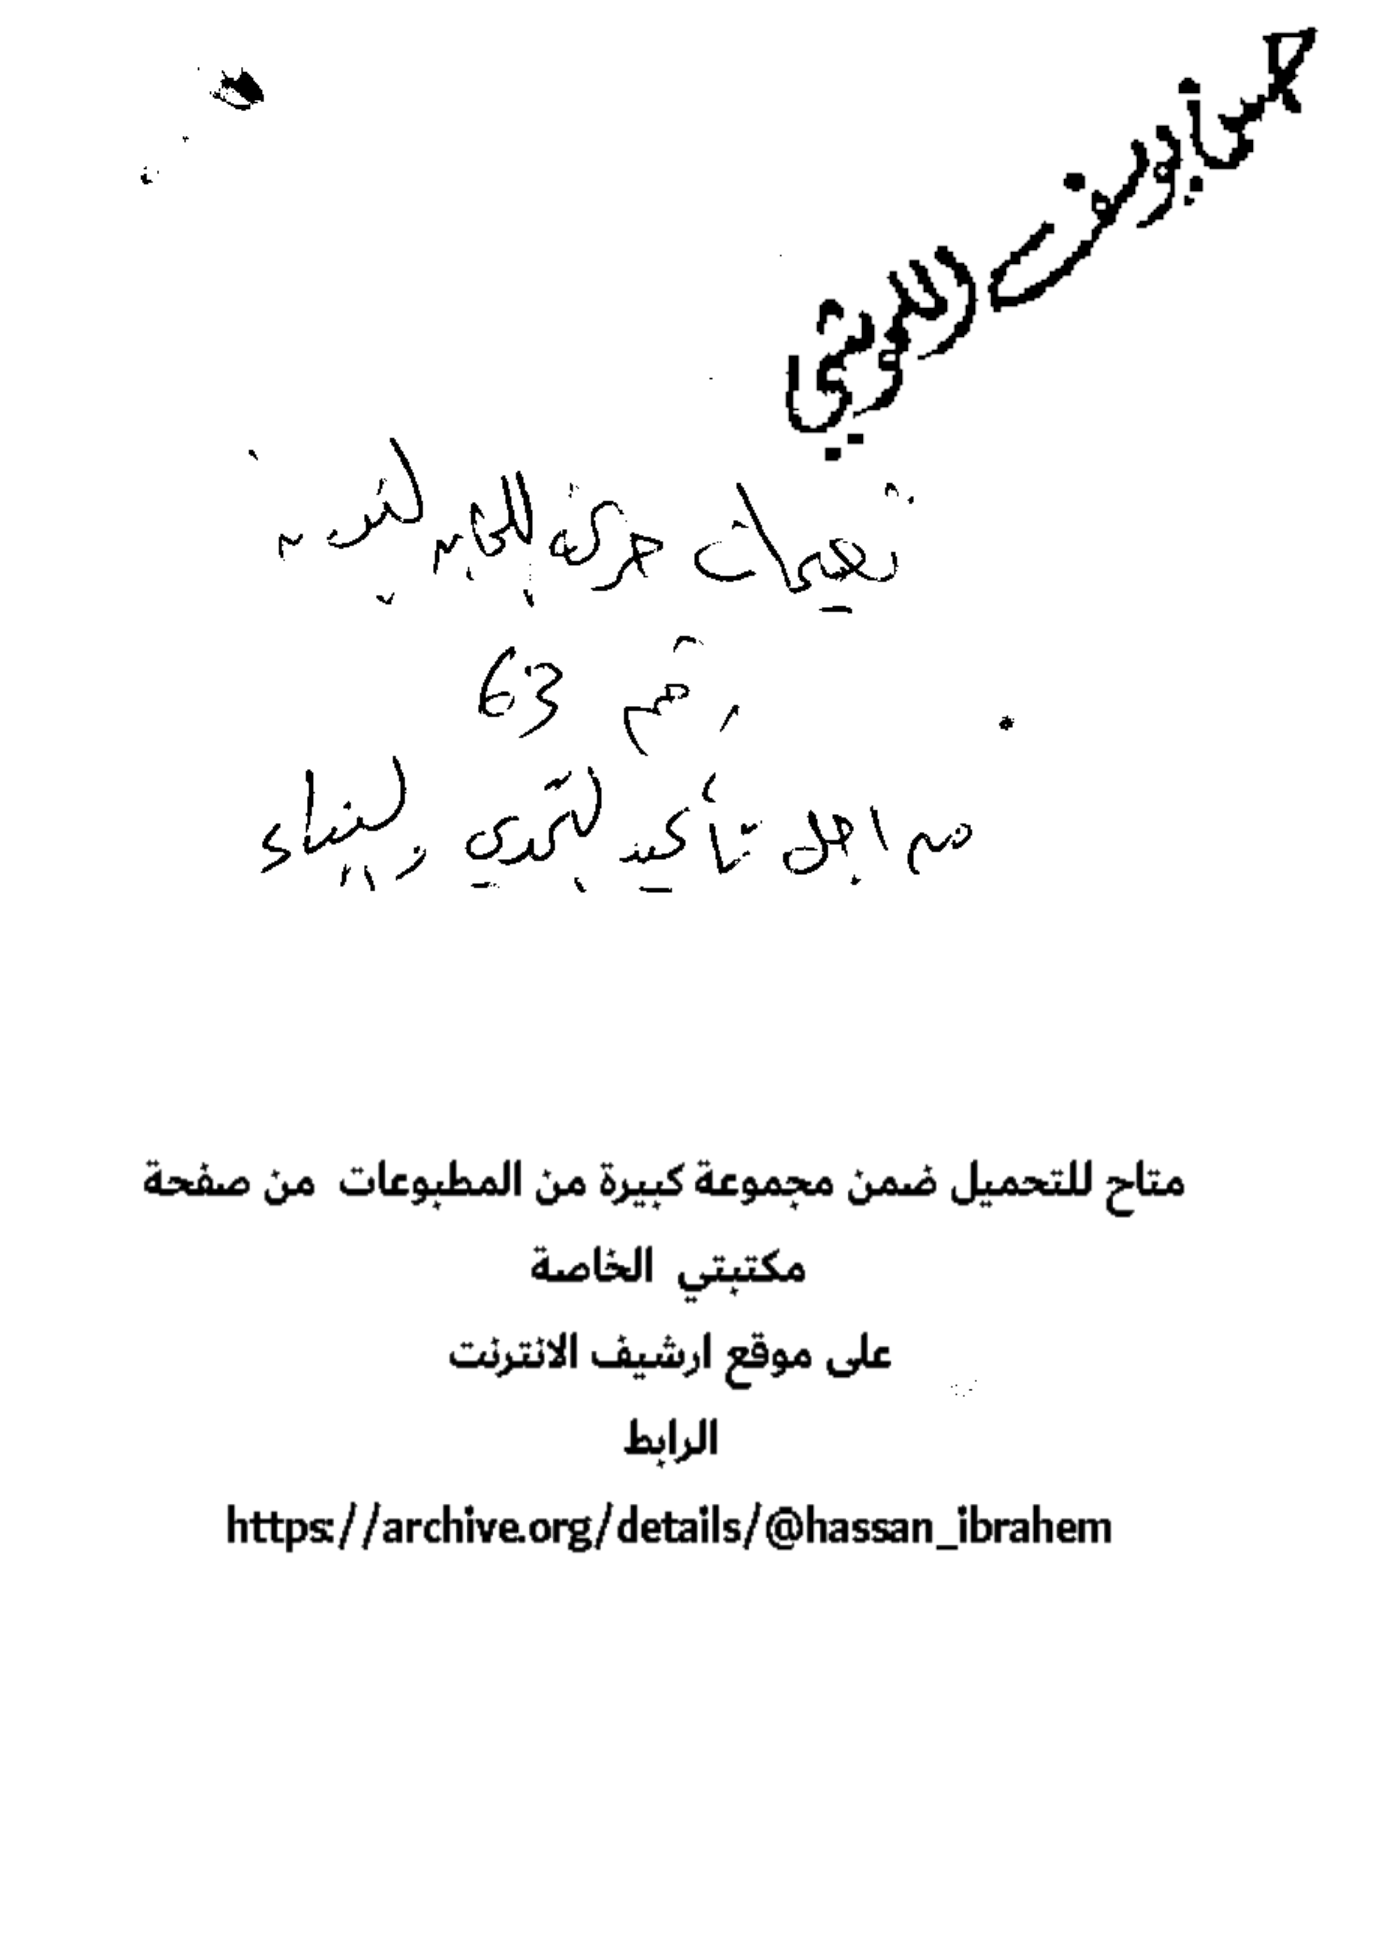 حسن يوسف اللموشي
تعميمات حركة اللجان الثورية
رقم 63
من اجل تأكيد التحدي والبناء
متاح للتحميل ضمن مجموعة كبيرة من المطبوعات من صفحة
مكتبتي الخاصة
على موقع ارشيف الانترنت
الرابط
https://archive.org/details/@hassan_ibrahem